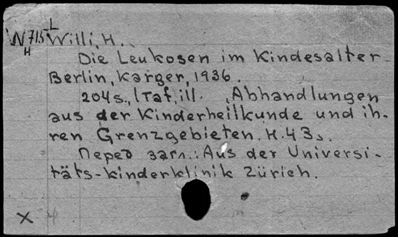 W 715 L Willi, H.
H
Die Leukosen im Kindesalter
Berlin, Karger, 1936.
204s., 1 Taf, ill. (Abhandlungen
aus der Kinderheilkunde und ih-
ren Grenzgebieten. H. 43).
Перед загл.: Aus der Universi-
täts-Kinderklinik Zürich.
X